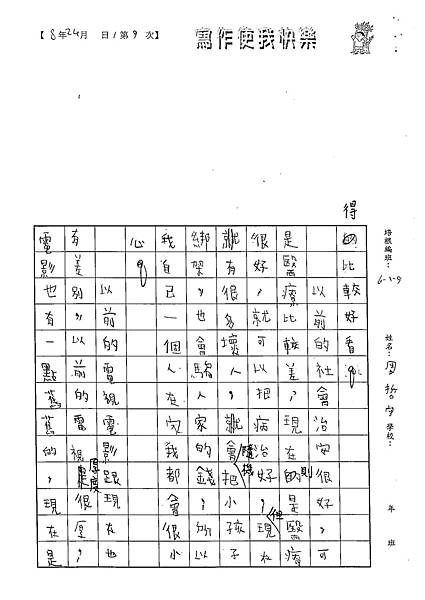 【 8 年 24 月 日 / 第 9 次】
寫作使我快樂
培根編班： 6-1-9
姓名：
學校：
年 班
得
比較好看。
以前社會治安很好，可
是醫療比較差現在的則是醫療
很好，就可以把病治好，但現在
就有很多壞人，就會隨機把小孩子
綁架，也會騙人家的錢，所以
我自己一個人在家我都會很小
心。
以前的電視電影跟現在也
有差別，以前的電視厚度是很厚，
電影也有一點舊舊的，現在是